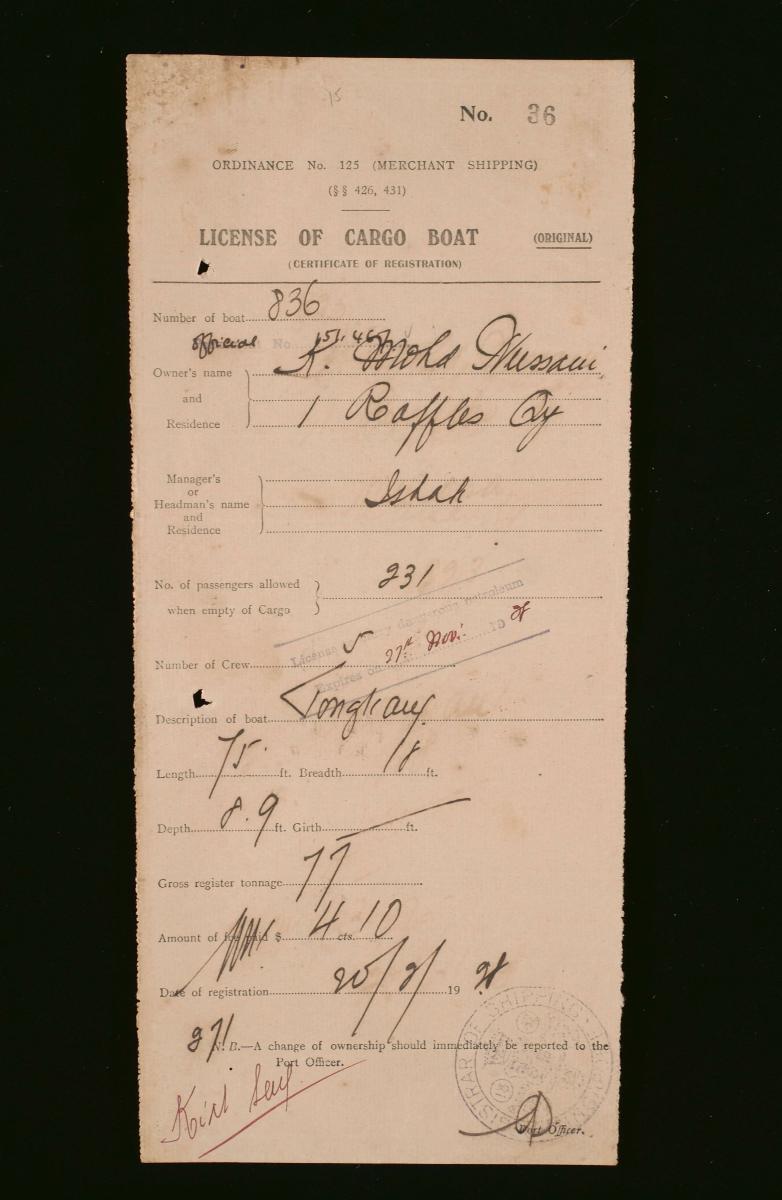 15
No. 36
ORDINANCE No. 125 (MERCHANT SHIPPING)
(§§ 426, 431)
LICENSE OF CARGO BOAT (ORIGINAL)
(CERTIFICATE OF REGISTRATION)
Number of boat 836
official No.
Owner's name
and
Residence
K. Mohd Hussain
1 Raffles Qy
Manager's
or
Headman's name
and
Residence
Ishak
No. of passengers allowed
when empty of Cargo
231
License dangerous petroleum
Expires on 27th Novr. 19 28
Number of Crew 5
Description of boat Tongkang
Length 75 ft. Breadth 18 ft.
Depth 8.9 ft. Girth ft.
Gross register tonnage 77
Amount of fee paid $ 4 cts. 10
Date of registration 20/2/ 19 28
271
N.B.—A change of ownership should immediately be reported to the
Port Officer.
REGISTRAR OF SHIPPING
Port Officer.